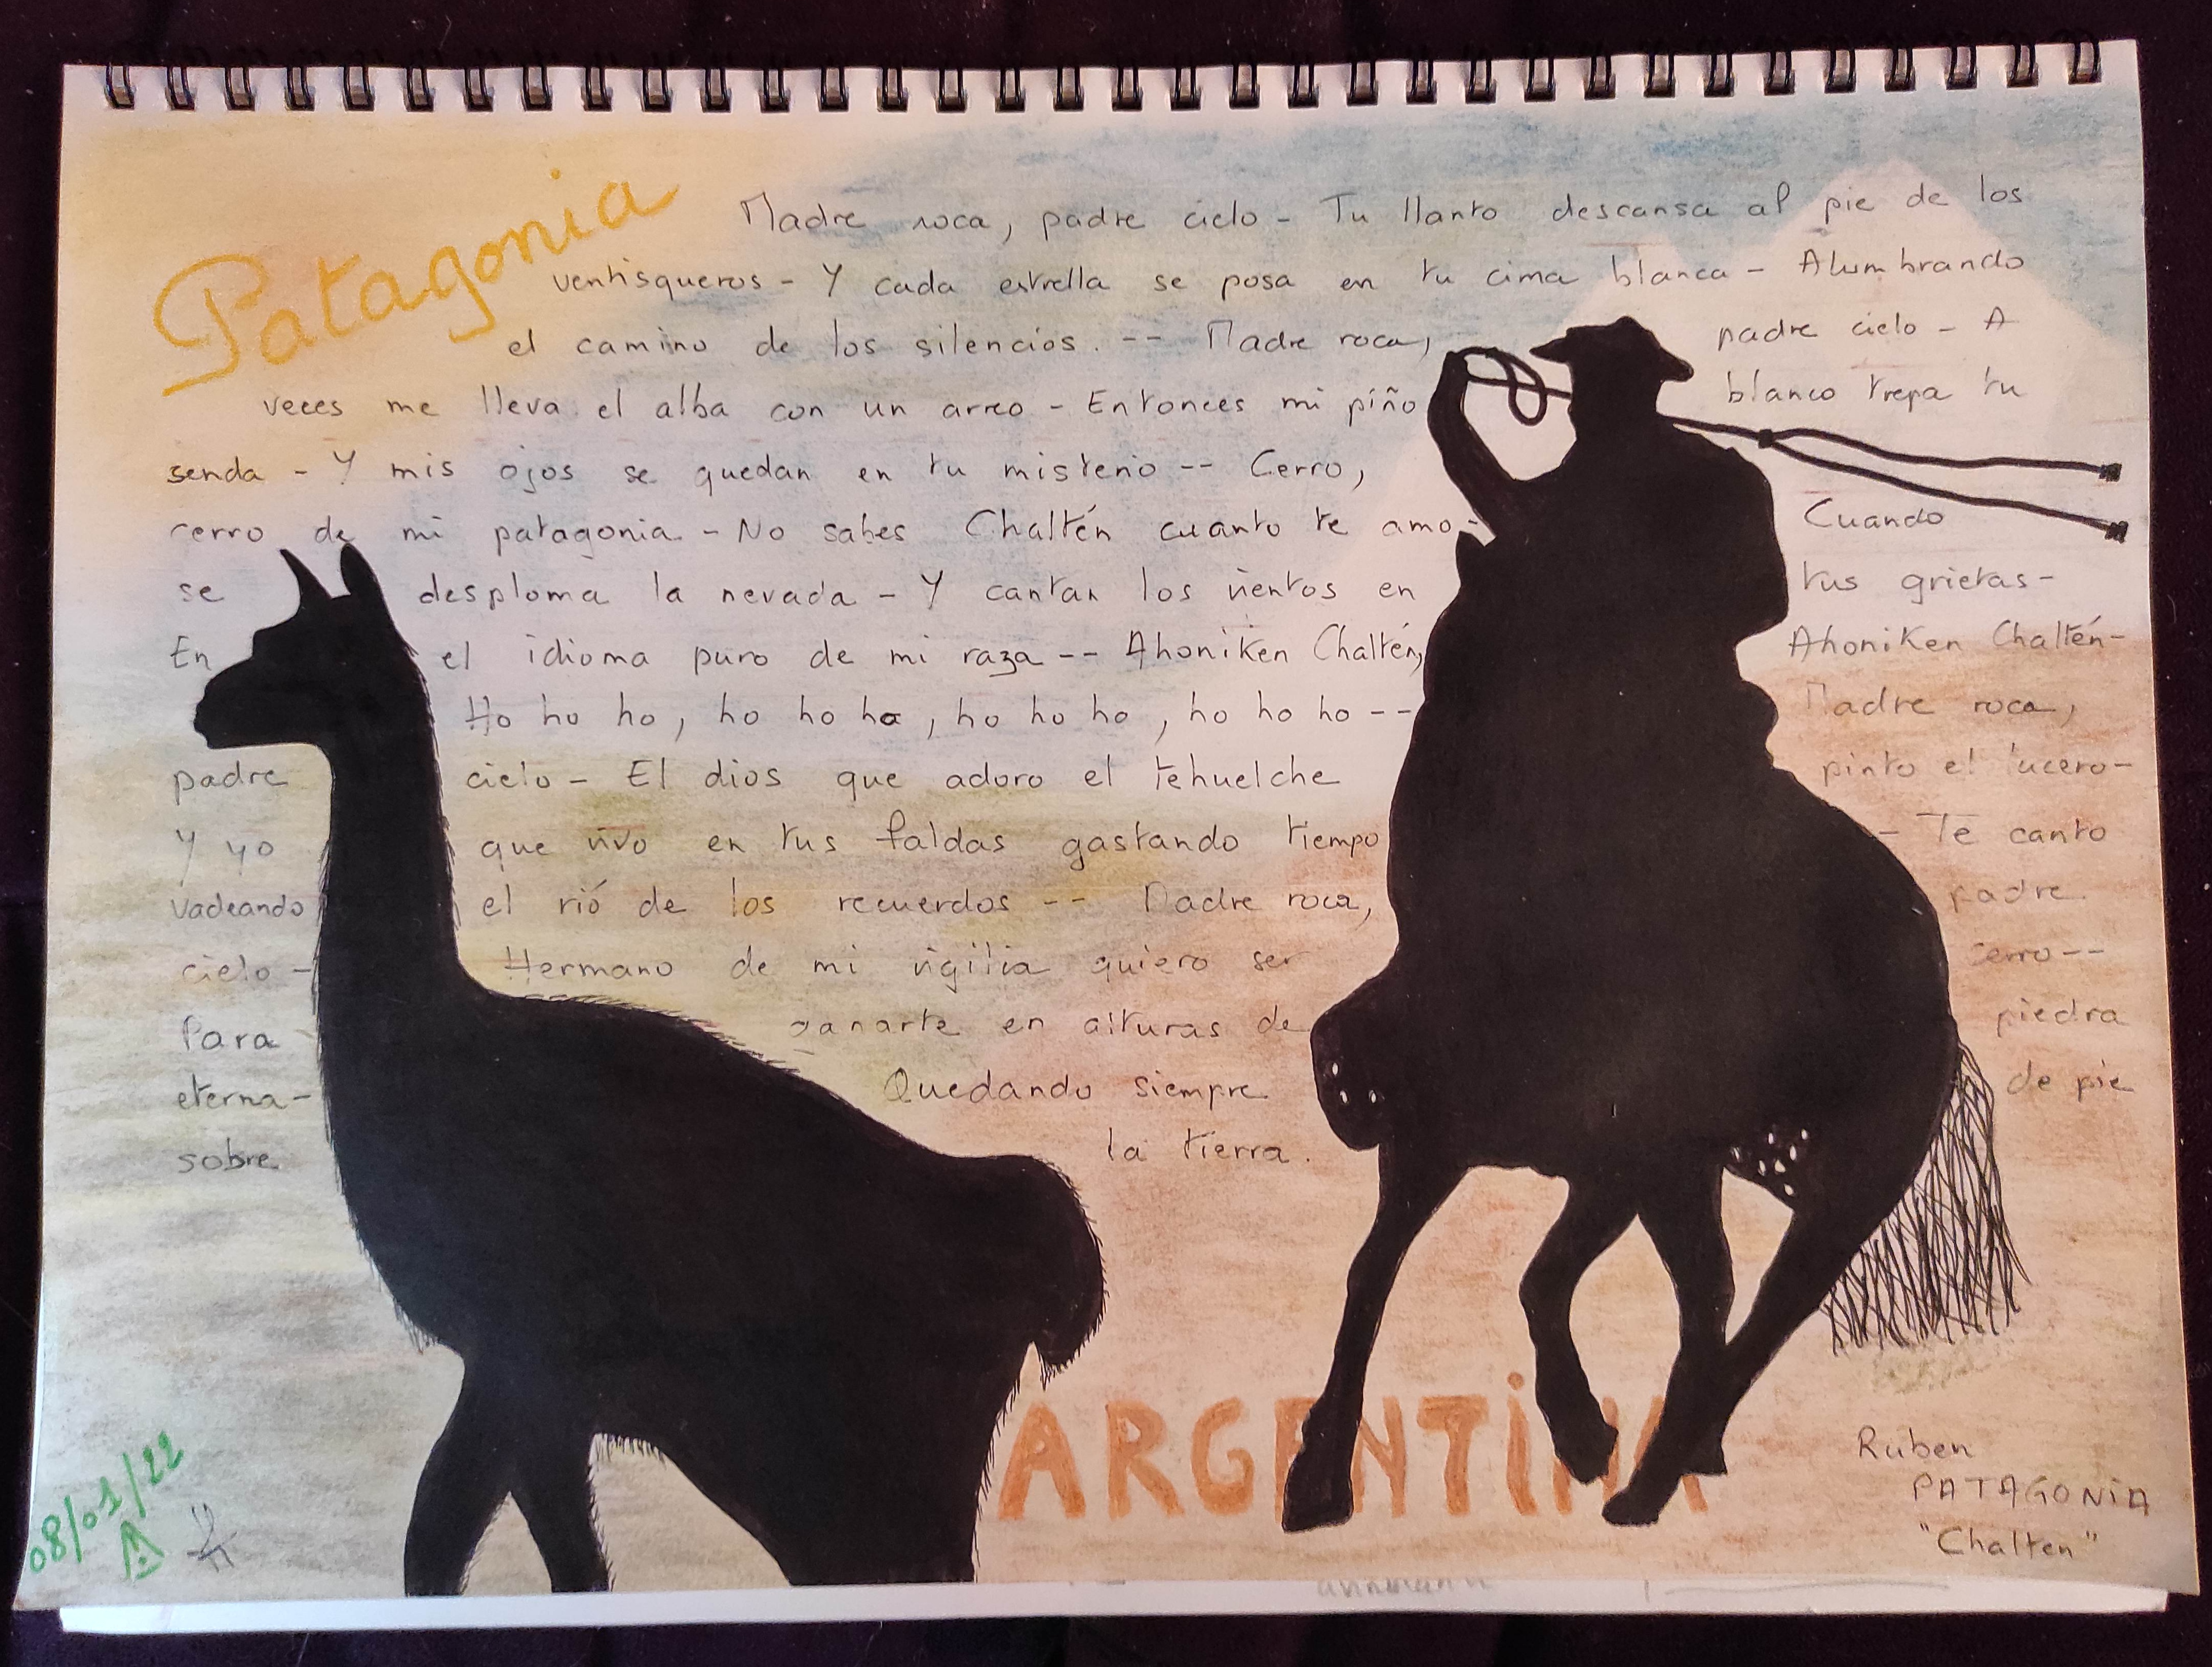 Patagonia
Madre roca, padre cielo - Tu llanto descansa al pie de los
ventisqueros - Y cada estrella se posa en tu cima blanca - Alumbrando
el camino de los silencios. -- Madre roca, padre cielo - A
veces me lleva el alba con un arreo - Entonces mi piño blanco trepa tu
senda - Y mis ojos se quedan en tu misterio -- Cerro,
cerro de mi patagonia - No sabes Chaltén cuanto te amo - Cuando
se desploma la nevada - Y cantan los vientos en tus grietas -
En el idioma puro de mi raza -- Ahoniken Chaltén, Ahoniken Chaltén -
Ho ho ho, ho ho ho, ho ho ho, ho ho ho -- Madre roca,
padre cielo - El dios que adoro el tehuelche pinto el lucero -
Y yo que vivo en tus faldas gastando tiempo - Te canto
vadeando el rió de los recuerdos -- Madre roca, padre
cielo - Hermano de mi vigilia quiero ser cerro --
Para ganarte en alturas de piedra
eterna - Quedando siempre de pie
sobre la tierra.
ARGENTINA
Ruben
PATAGONIA
"Chalten"
08/01/22